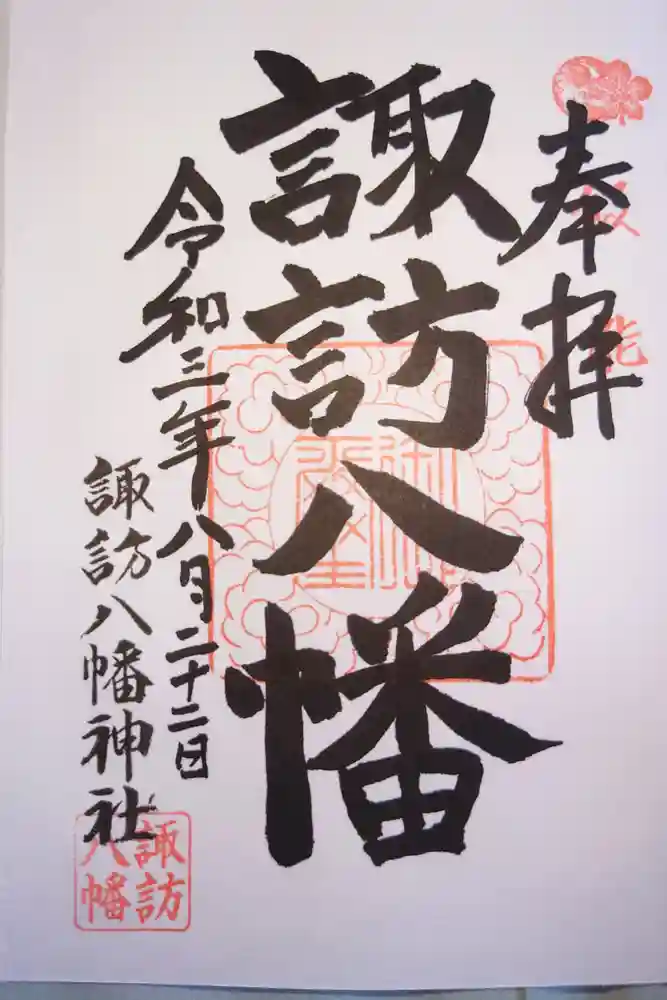 奉拝
飯能
諏訪八幡
令和三年八月二十二日
諏訪八幡神社
諏訪
八幡